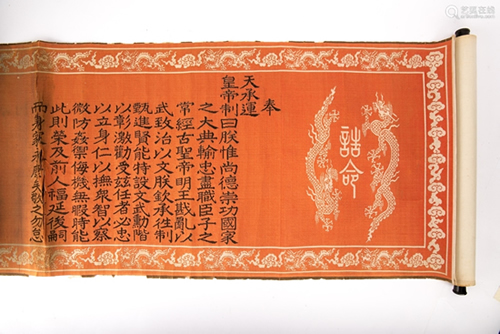 誥命
奉
天承運
皇帝制曰朕惟尚德崇功國家
之大典輸忠盡職臣子之
常經古聖帝明王戡亂以
武致治以文朕欽承往制
甄進賢能特設文武勳階
以彰激勸受茲任者必忠
以立身仁以撫眾智以察
微防姦禦侮機無暇時能
此則榮及前人福延後嗣
而身家永康矣敬之勿怠
艺狐在线